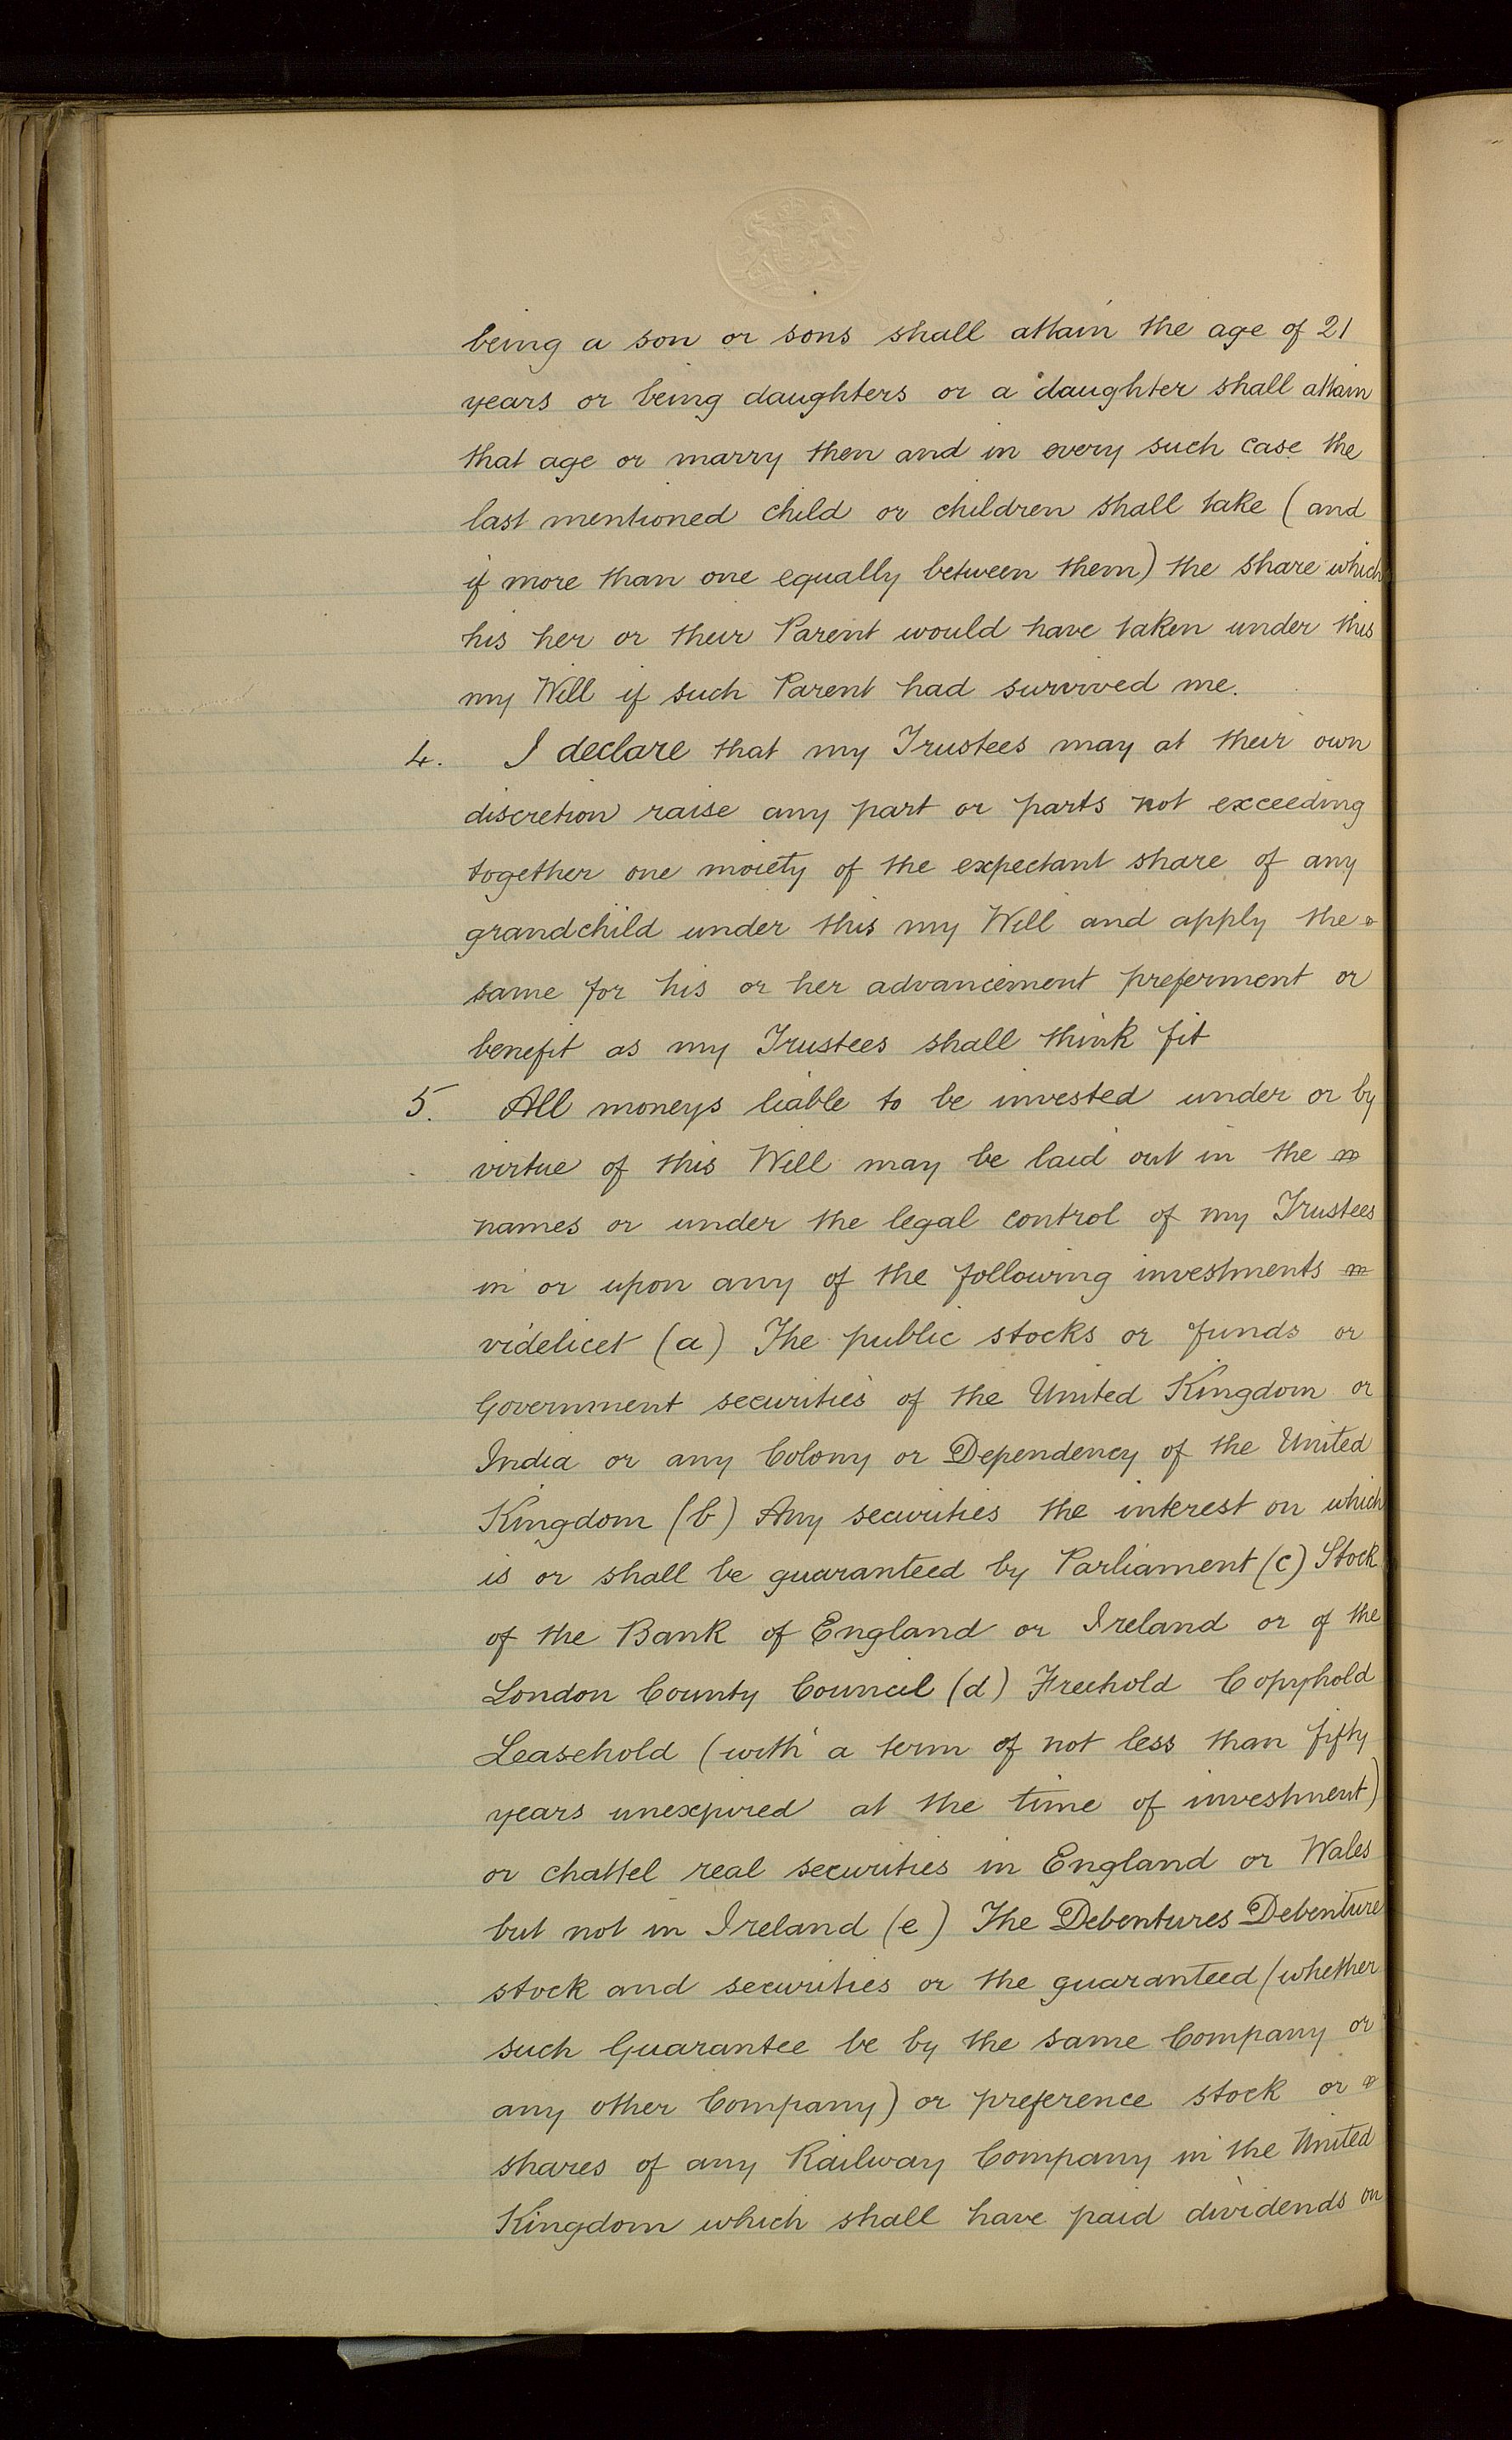 being a son or sons shall attain the age of 21
years or being daughters or a daughter shall attain
that age or marry then and in every such case the
last mentioned child or children shall take (and
if more than one equally between them) the share which
his her or their Parent would have taken under this
my Will if such Parent had survived me.
4. I declare that my Trustees may at their own
discretion raise any part or parts not exceeding
together one moiety of the expectant share of any
grandchild under this my Will and apply the
same for his or her advancement preferment or
benefit as my Trustees shall think fit
5. All moneys liable to be invested under or by
virtue of this Will may be laid out in the
names or under the legal control of my Trustees
in or upon any of the following investments
videlicet (a) The public stocks or funds or
Government securities of the United Kingdom or
India or any Colony or Dependency of the United
Kingdom (b) Any securities the interest on which
is or shall be guaranteed by Parliament (c) Stock
of the Bank of England or Ireland or of the
London County Council (d) Freehold Copyhold
Leasehold (with a term of not less than fifty
years unexpired at the time of investment)
or chattel real securities in England or Wales
but not in Ireland (e) The Debentures Debenture
stock and securities or the guaranteed (whether
such Guarantee be by the same Company or
any other Company) or preference stock or
shares of any Railway Company in the United
Kingdom which shall have paid dividends on